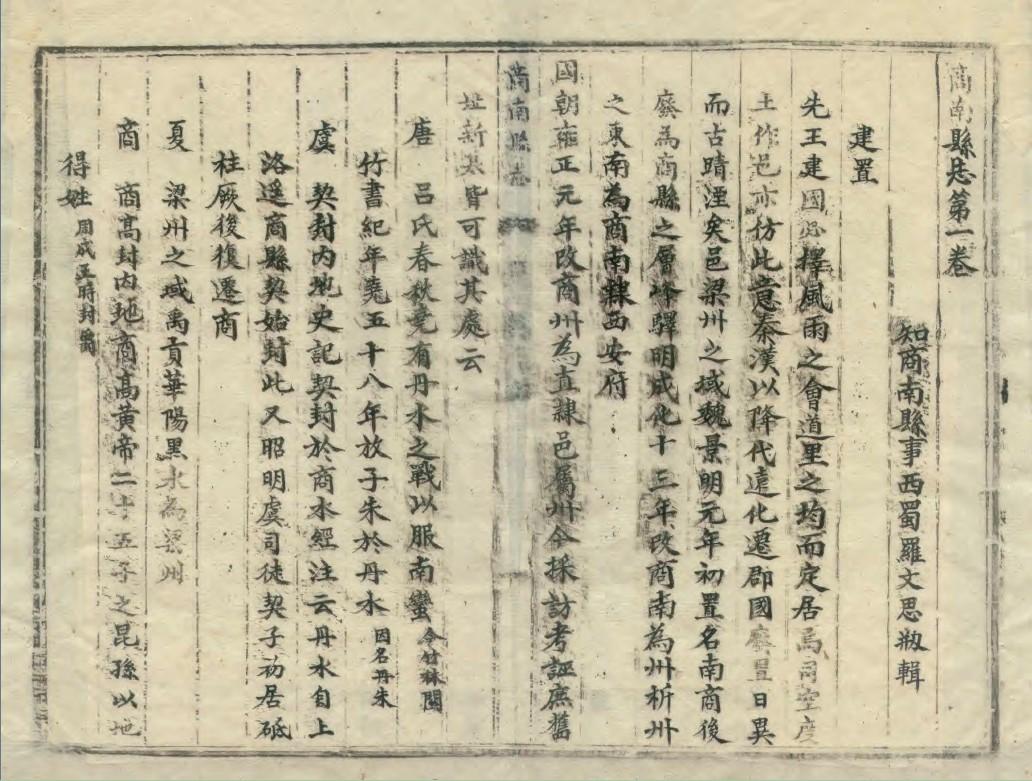 商南縣志第一卷
知商南縣事西蜀羅文思 輯
建置
先王建國必擇風雨之會道里之均而定居焉司空度
土作邑亦彷此意秦漢以降代遠化遷郡國廢置日異
而古晴湮矣邑梁州之域魏景明元年初置名南商後
廢為商縣之層峰驛明成化十三年改商南為州析州
之東南為商南隸西安府
國朝雍正元年改商州為直隸邑屬州今採訪考誣庶舊
商南縣志
址新基皆可識其處云
唐 呂氏春秋堯有丹水之戰以服南蠻今竹林關
竹書紀年堯五十八年放子朱於丹水因名丹朱
虞 契封內地史記契封於商水經注云丹水自上
洛逕商縣契始封此又昭明虞司徒契子初居砥
柱厥後復遷商
夏 梁州之域禹貢華陽黑水為梁州
商 商高封內地商高黃帝二十五子之昆孫以地
得姓周成王時封